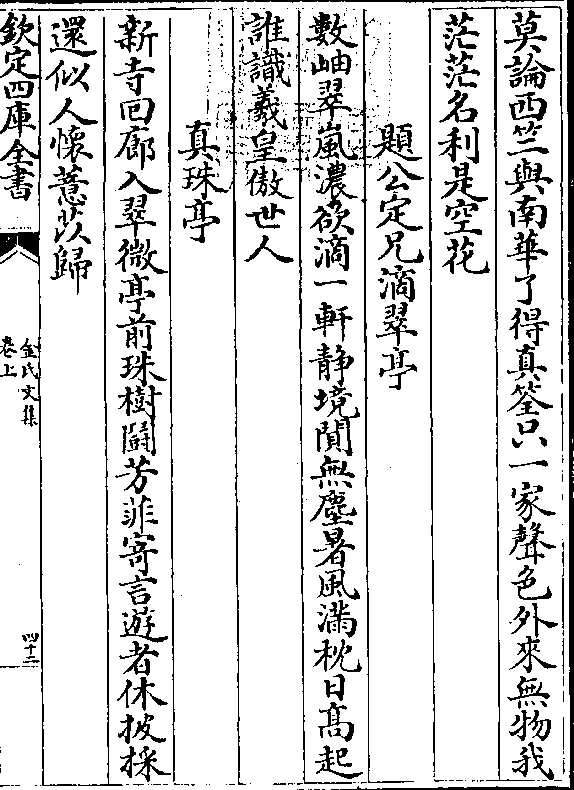 莫論西竺與南華了得真筌只一家聲色外來無物我
茫茫名利是空花
題公定兄滴翠亭
數岫翠嵐濃欲滴一軒靜境閴無塵暑風滿枕日髙起
誰識羲皇傲世人
真珠亭
新寺回廊入翠微亭前珠樹鬪芳菲寄言遊者休披採
還似人懷薏苡歸
欽定四庫全書
金氏文集
卷上
四十二